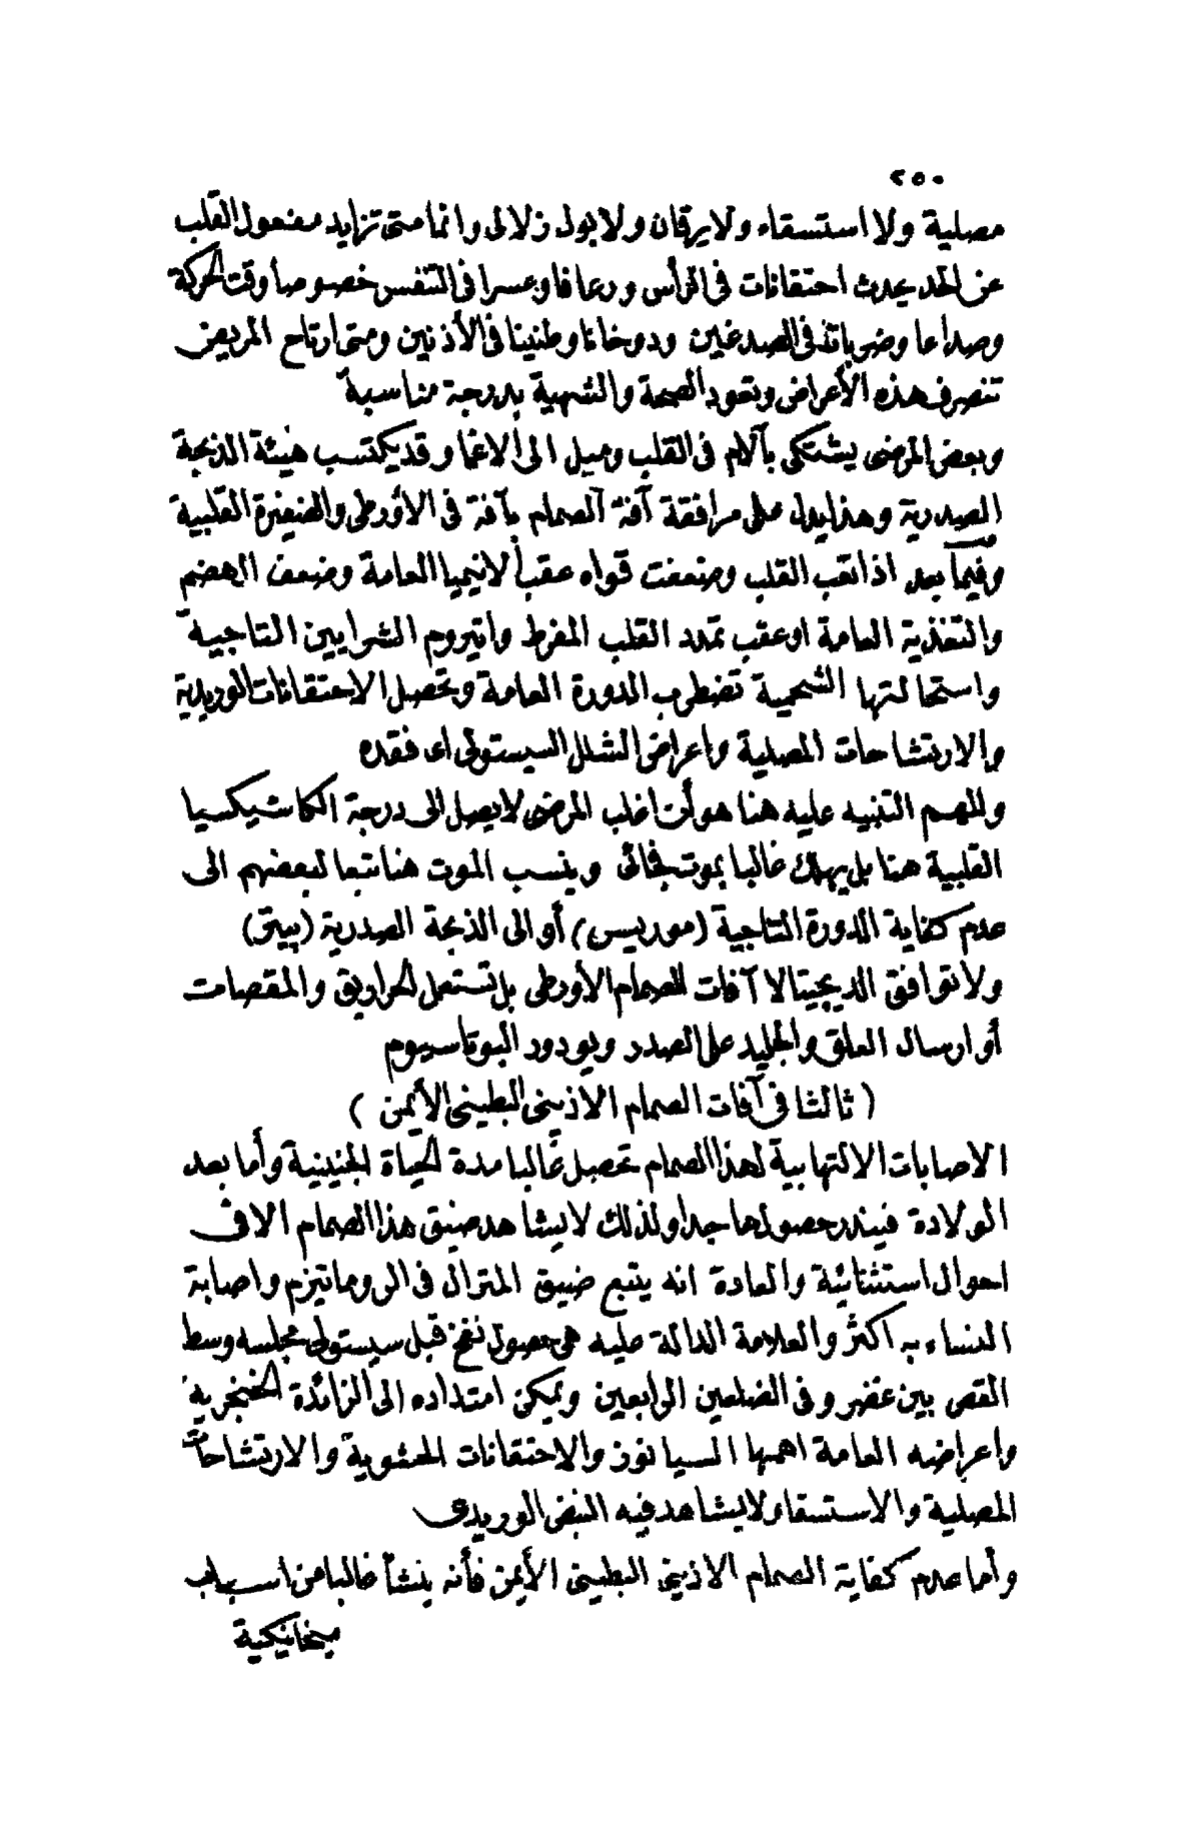 ٢٥٠
مصلية ولا استسقاء ولا يرقان ولا بول زلالى وانما متى تزايد مفعول القلب
عن الحد يحدث احتقانات فى الرأس ورعافا وعسرا فى التنفس خصوصا وقت الحركة
وصداعا وضربانا فى الصدغين ودوخانا وطنينا فى الأذنين ومتى ارتاح المريض
تنصرف هذه الأعراض وتعود الصحة والشهية بدرجة مناسبة
وبعض المرضى يشتكى بآلام فى القلب وميل الى الاغماء وقد يكتسب هيئة الذبحة
الصدرية وهذا يدل على مرافقة آفة الصمام بآفة فى الاورطى والضفيرة القلبية
وفيما بعد اذا تعب القلب وضعفت قواه عقب الانيميا العامة وضعف الهضم
والتغذية العامة او عقب تمدد القلب المفرط واتيروم الشرايين التاجية
واستحالتها الشحمية تضطرب الدورة العامة وتحصل الاحتقانات الوريدية
والارتشاحات المصلية واعراض الشلل السيستولى اى فقده
والمهم التنبيه عليه هنا هو أن اغلب المرضى لا يصل الى درجة الكاشيكسيا
القلبية هنا بل يهلك غالبا بموت فجائى وينسب الموت هنا تبعا لبعضهم الى
عدم كفاية الدورة التاجية (موريس) أو الى الذبحة الصدرية (بيتر)
ولا توافق الديجيتالا آفات الصمام الأورطى بل تستعمل الحراريق والمقصات
أو ارسال العلق والجليد على الصدر ويودور البوتاسيوم
(ثالثا فى آفات الصمام الاذينى البطينى الأيمن)
الاصابات الالتهابية لهذا الصمام تحصل غالبا مدة الحياة الجنينية وأما بعد
الولادة فيندر حصولها جدا ولذلك لا يشاهد ضيق هذا الصمام الا فى
احوال استثنائية والعادة انه يتبع ضيق المترال فى الروماتيزم واصابة
النساء به اكثر والعلامة الدالة عليه هى حصول نفخ قبل سيستولى مجلسه وسط
القص بين غضروفى الضلعين الرابعين ويمكن امتداده الى الزائدة الخنجرية
واعراضه العامة اهمها السيانوز والاحتقانات الحشوية والارتشاحات
المصلية والاستسقاء ولا يشاهد فيه النبض الوريدى
وأما عدم كفاية الصمام الاذينى البطينى الأيمن فأنه ينشأ غالبا من اسباب
ميخانيكية